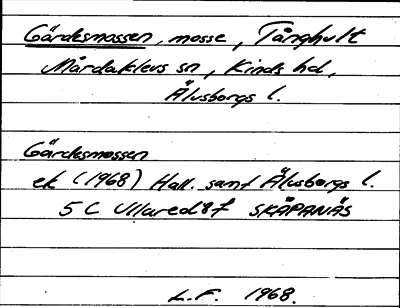 Gärdesmossen, mosse, Tånghult
Mårdaklevs sn, Kinds hd,
Älvsborgs l.
Gärdesmossen
ek (1968) Hall. samt Älvsborgs l.
5 C Ullared 8 f SKÄPANÄS
L.F. 1968.